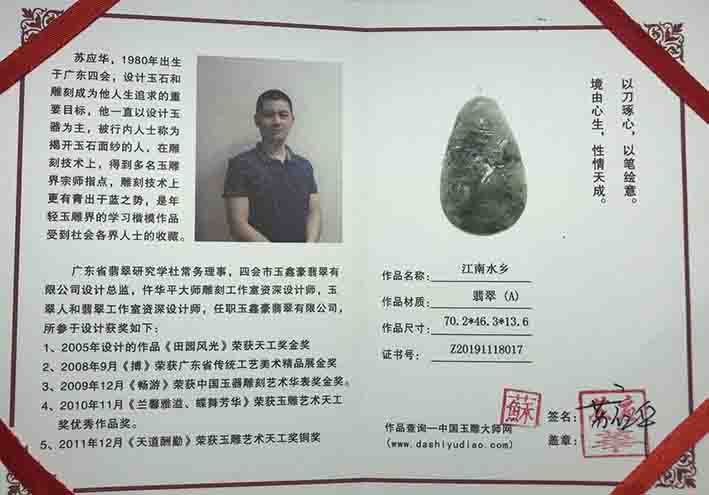 苏应华，1980年出生
于广东四会，设计玉石和
雕刻成为他人生追求的重
要目标，他一直以设计玉
器为主，被行内人士称为
揭开玉石面纱的人，在雕
刻技术上，得到多名玉雕
界宗师指点，雕刻技术上
更有青出于蓝之势，是年
轻玉雕界的学习楷模作品
受到社会各界人士的收藏。
广东省翡翠研究学社常务理事，四会市玉鑫豪翡翠有
限公司设计总监，仵华平大师雕刻工作室资深设计师，玉
翠人和翡翠工作室资深设计师，任职玉鑫豪翡翠有限公司，
所参于设计获奖如下：
1、2005年设计的作品《田园风光》荣获天工奖金奖
2、2008年9月《搏》荣获广东省传统工艺美术精品展金奖
3、2009年12月《畅游》荣获中国玉器雕刻艺术华表奖金奖。
4、2010年11月《兰馨雅溢、蝶舞芳华》荣获玉雕艺术天工
奖优秀作品奖。
5、2011年12月《天道酬勤》荣获玉雕艺术天工奖铜奖
以刀琢心，以笔绘意。
境由心生，性情天成。
作品名称: 江南水乡
作品材质: 翡翠 (A)
作品尺寸: 70.2*46.3*13.6
证书号: Z20191118017
蘇
签名:
盖章:
作品查询—中国玉雕大师网
(www.dashiyudiao.com)